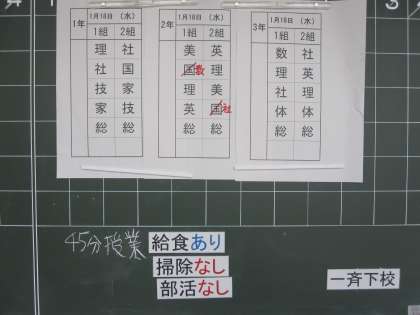 1年 1月18日 (水)
1組 2組
理 社
社 国
技 家
家 技
総 総
2年 1月18日 (水)
1組 2組
美 英
国 数 理
理 美
英 国 社
総 総
3年 1月18日 (水)
1組 2組
数 社
理 英
社 理
体 体
総 総
45分授業 給食あり
掃除なし
部活なし
一斉下校